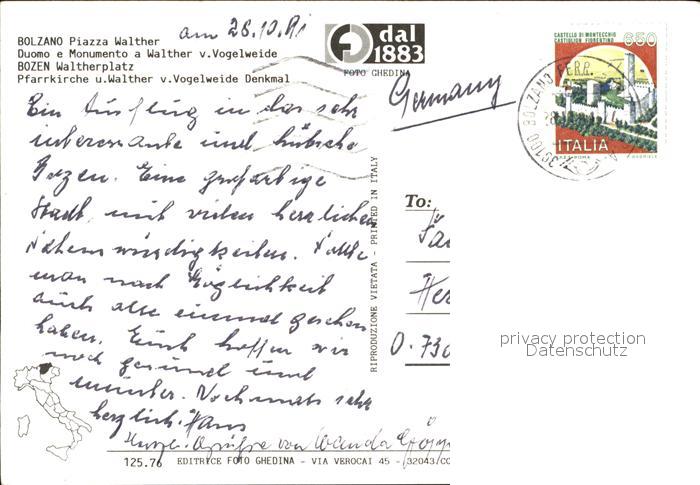 BOLZANO Piazza Walther
Duomo e Monumento a Walther v.Vogelweide
BOZEN Waltherplatz
Pfarrkirche u.Walther v.Vogelweide Denkmal
am 28.10.91
dal
1883
FOTO GHEDINA
Germany
CASTELLO DI MONTECCHIO
CASTIGLION FIORENTINO
650
ITALIA
BOLZANO FERR.
Ein Ausflug in das sehr
interessante und hübsche
Bozen. Eine großartige
Stadt, mit vielen herrlichen
Sehenswürdigkeiten. Sollte
man nach Möglichkeit
auch alle einmal gesehen
haben. Euch hoffen wir
noch gesund und
munter. Nochmals sehr
herzlich. Hans
Herzl. Grüße von Wanda
RIPRODUZIONE VIETATA - PRINTED IN ITALY
To:
Her
0.730
privacy protection
Datenschutz
125.76 EDITRICE FOTO GHEDINA - VIA VEROCAI 45 - 32043/CO